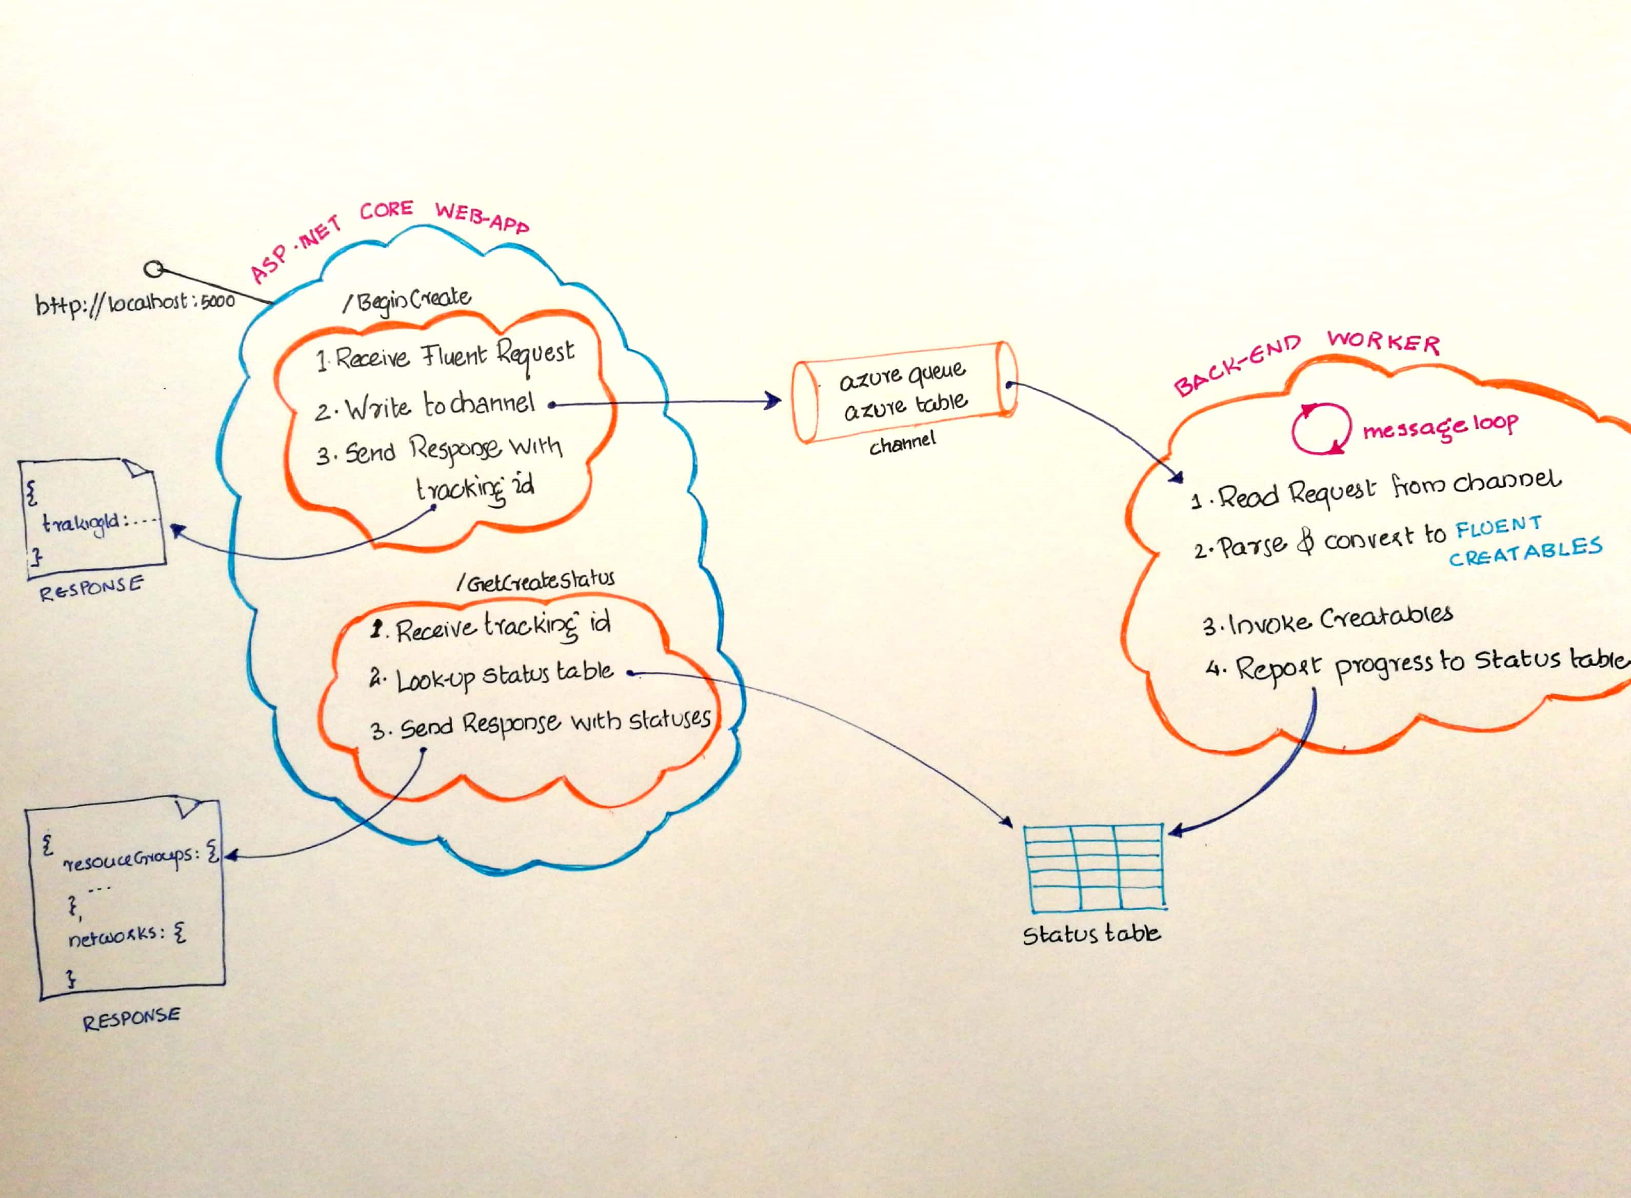 ASP.NET CORE WEB-APP
http://localhost:5000
/BeginCreate
1. Receive Fluent Request
2. Write to channel
3. Send Response with
tracking id
{
trakigId:...
}
RESPONSE
/GetCreateStatus
1. Receive tracking id
2. Look-up status table
3. Send Response with statuses
{
resouceGroups: {
...
},
networks: {
}
RESPONSE
azure queue
azure table
channel
BACK-END WORKER
message loop
1. Read Request from channel
2. Parse & convert to FLUENT
CREATABLES
3. Invoke Creatables
4. Report progress to Status table
Status table